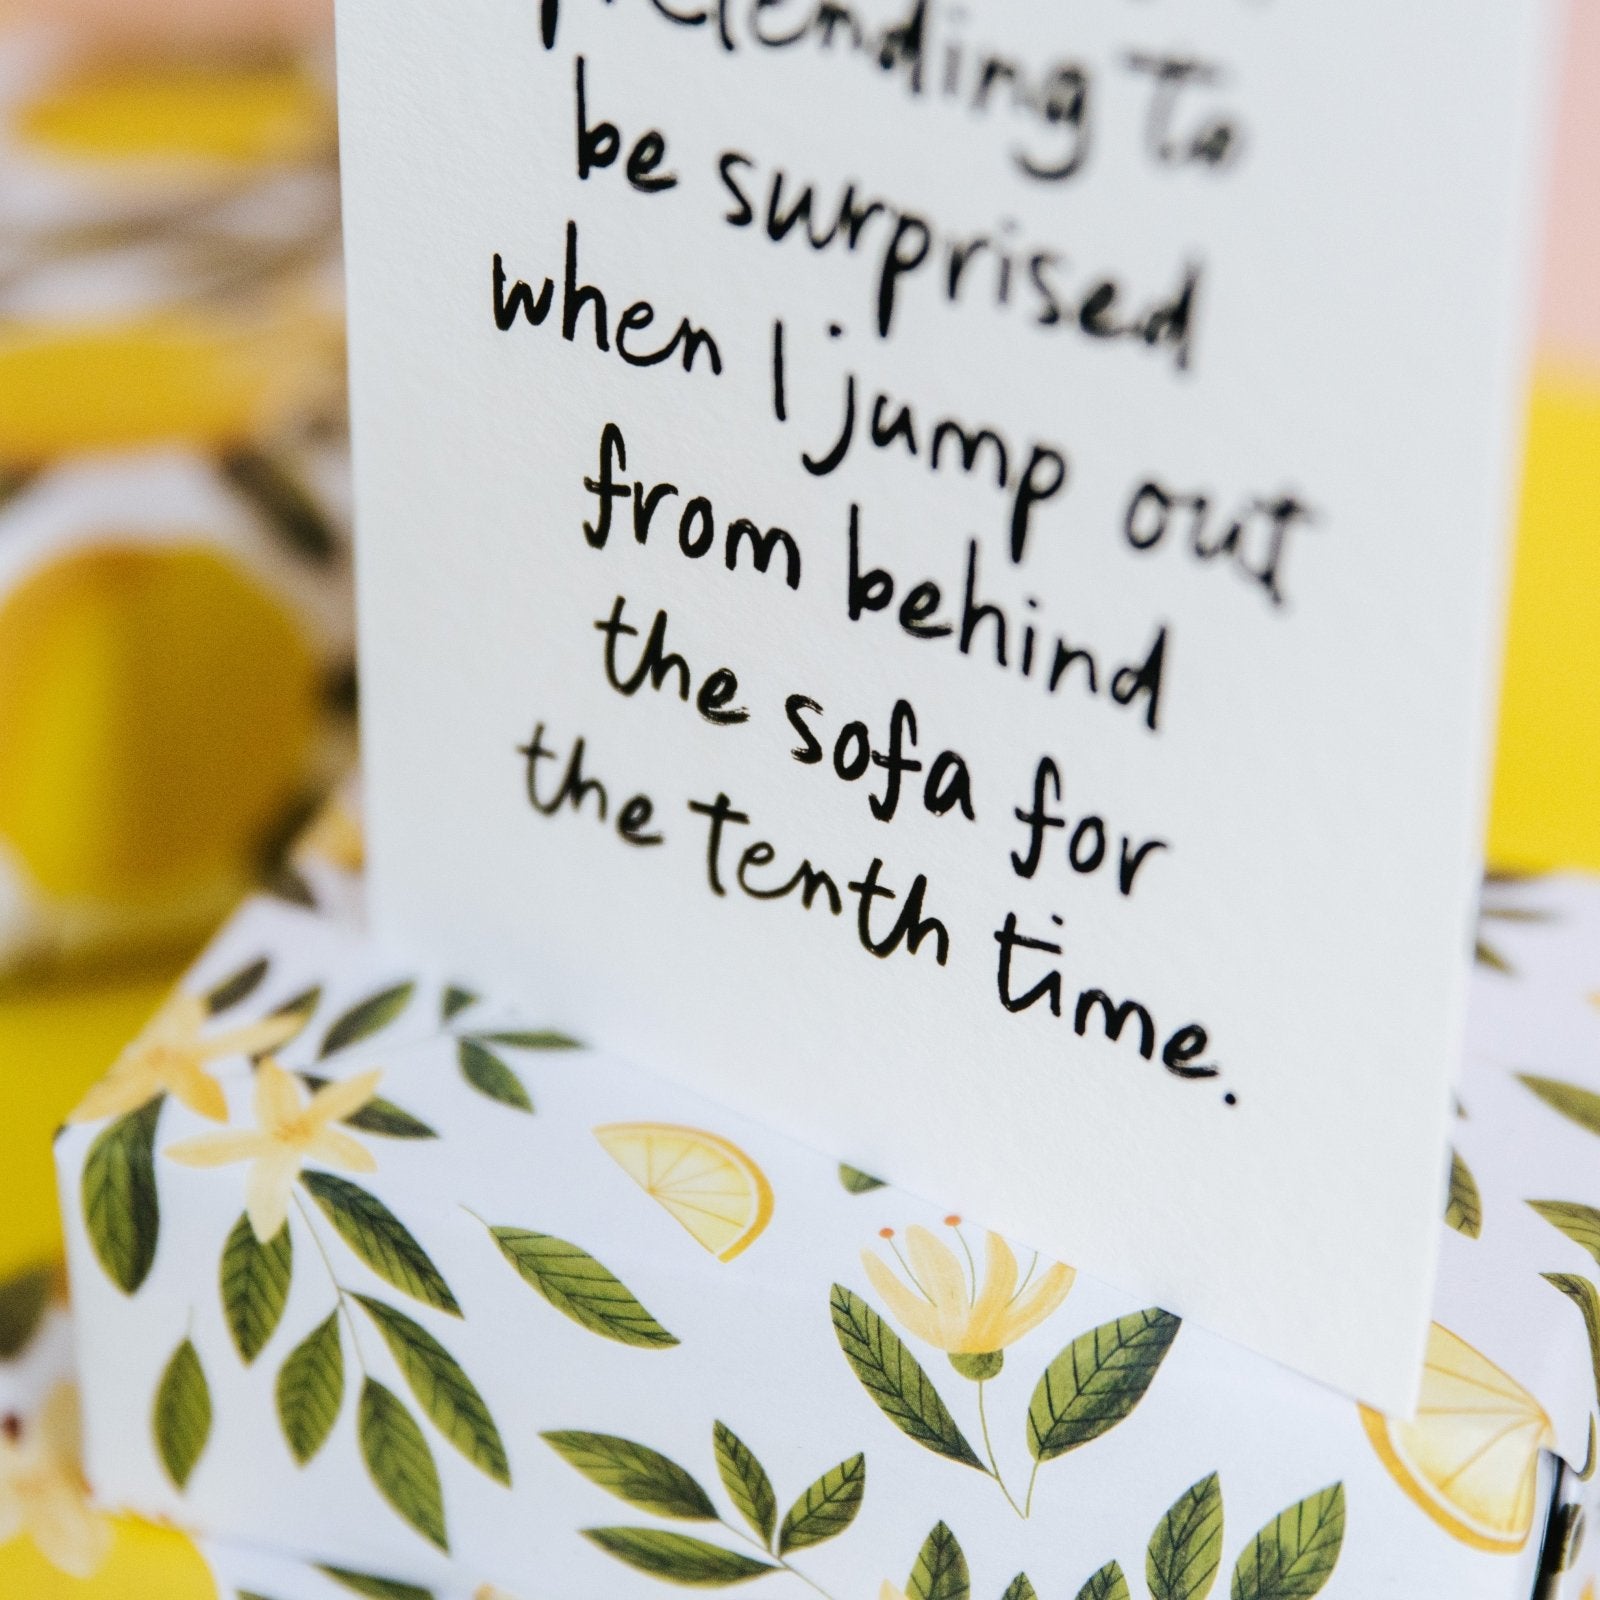 pretending to
be surprised
when I jump out
from behind
the sofa for
the tenth time.